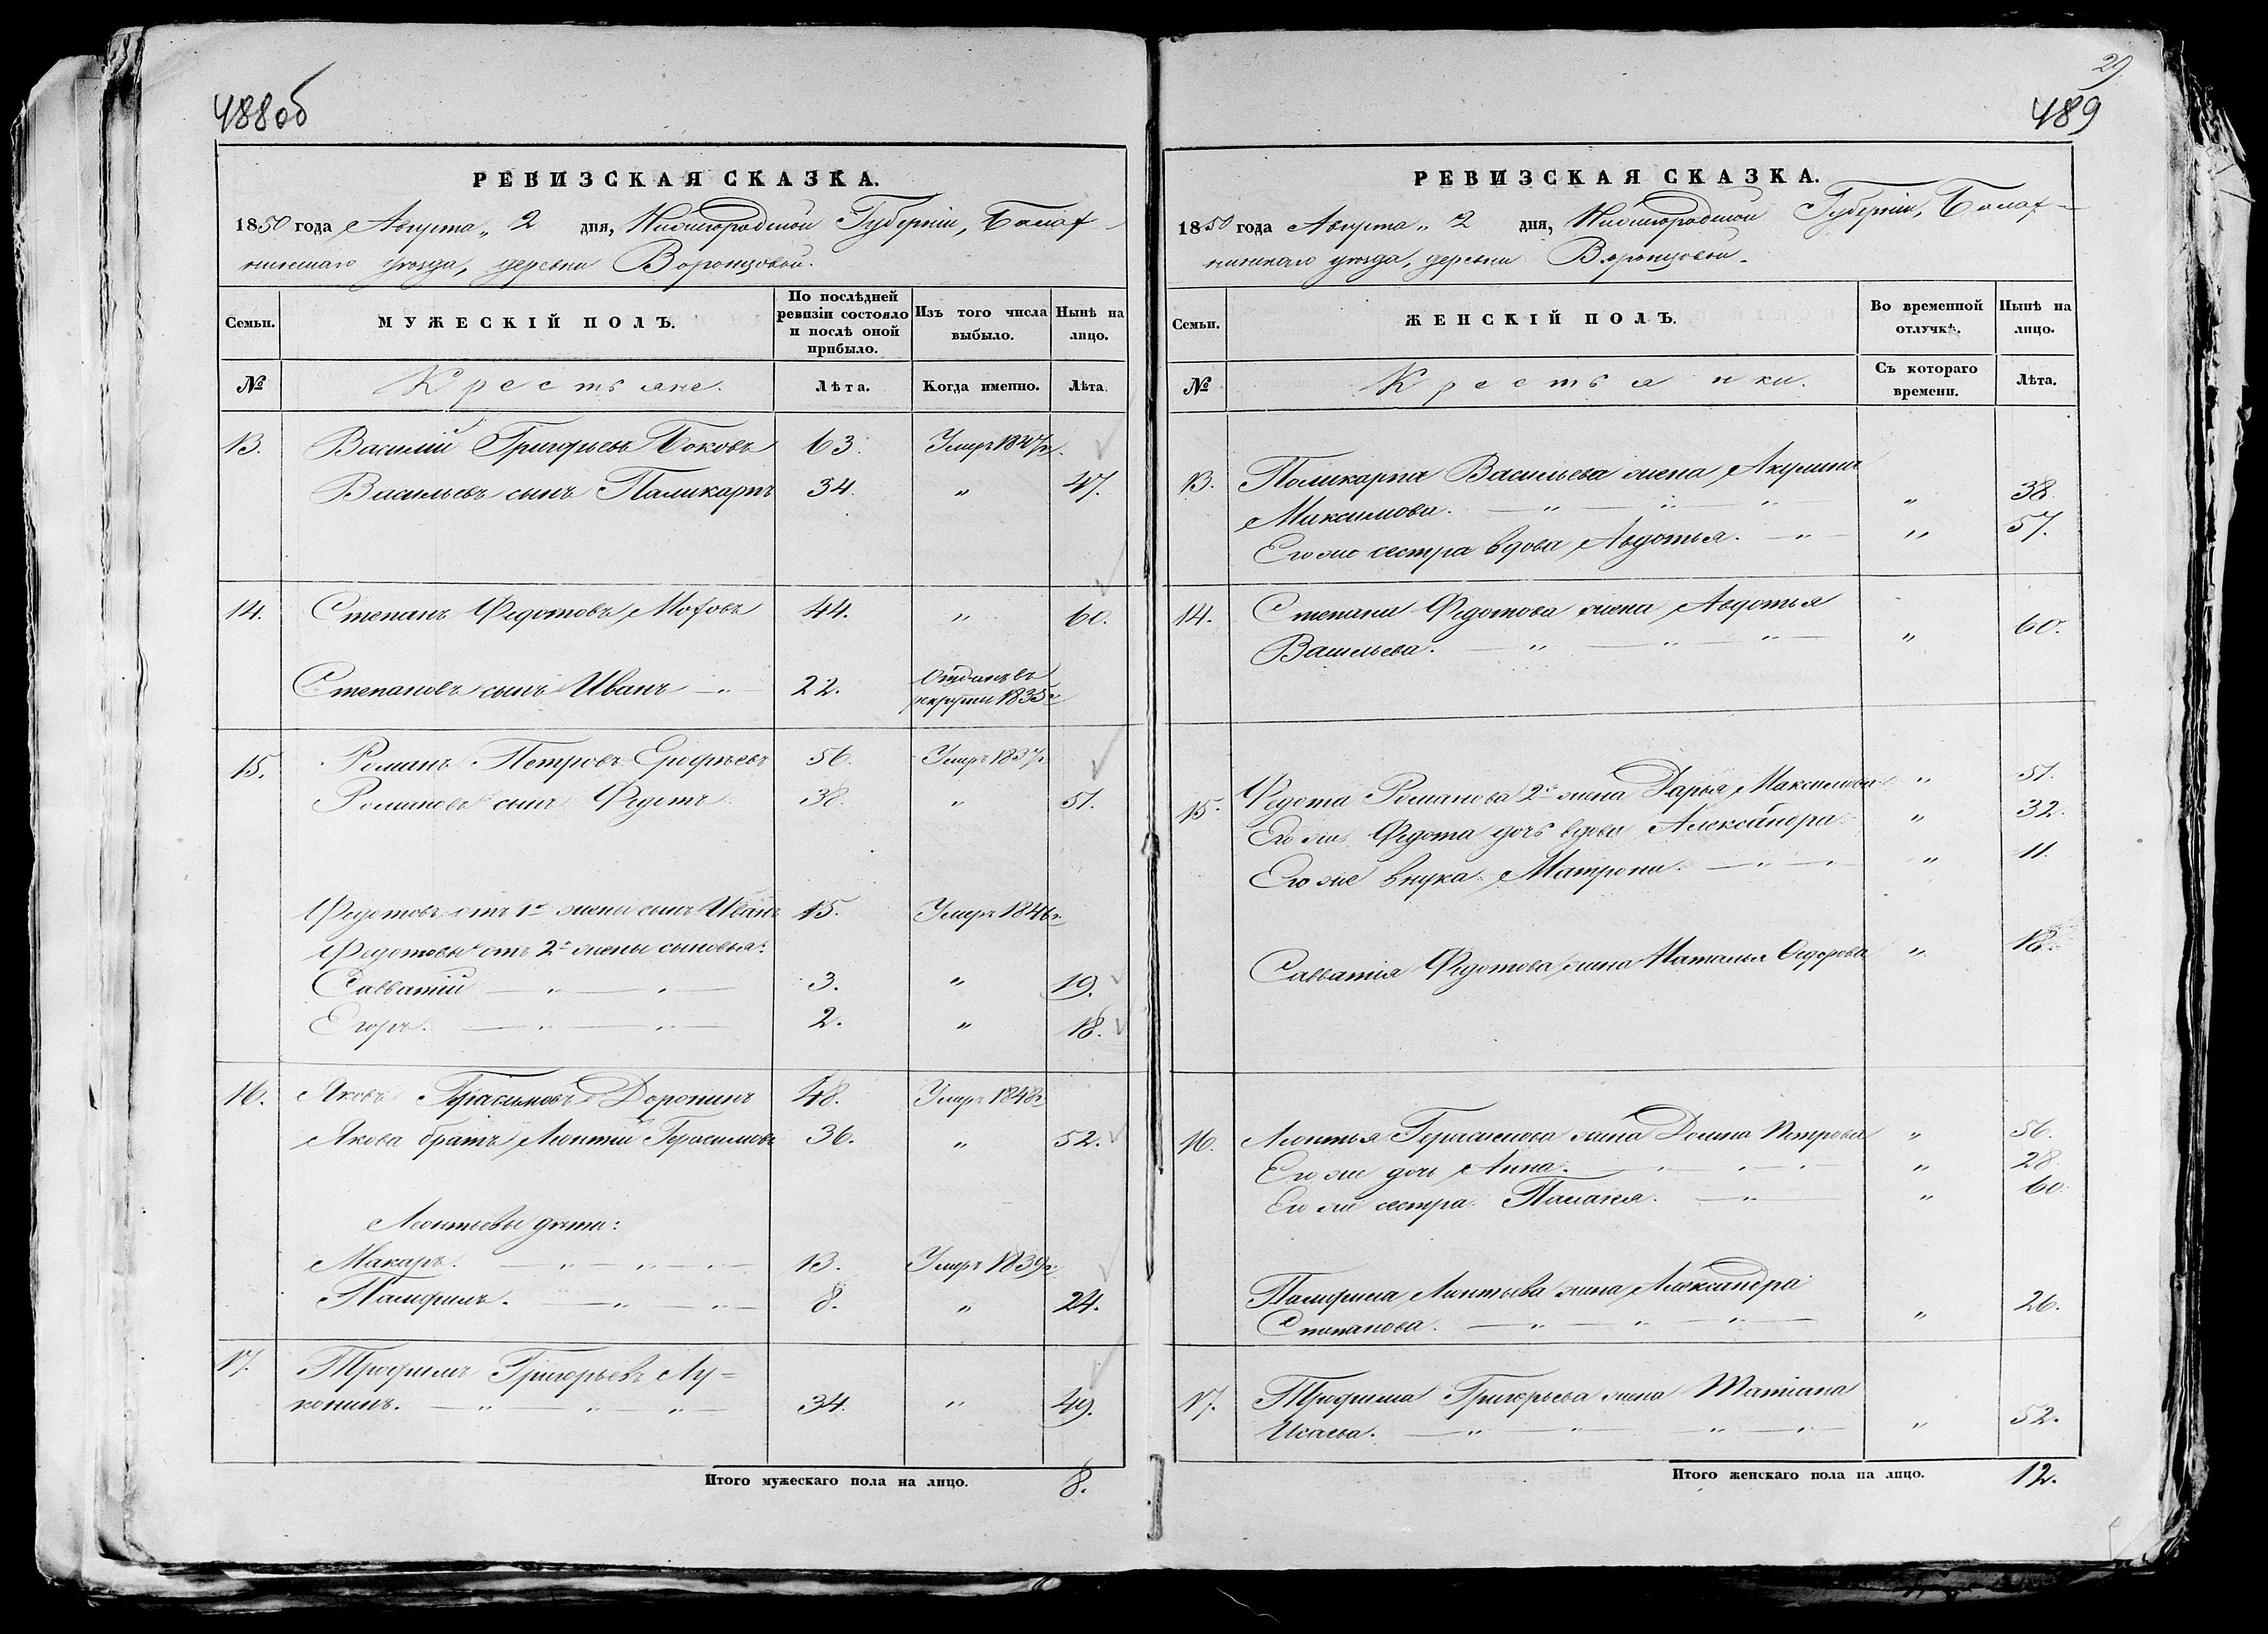 488об
РЕВИЗСКАЯ СКАЗКА.
1850 года Августа „ 2 дня, Нижегородской Губерніи, Балах-
нинскаго уѣзда, деревни Воронцовой.
Семьи. МУЖЕСКІЙ ПОЛЪ. По послѣдней ревизіи состояло и послѣ оной прибыло. Изъ того числа выбыло. Нынѣ на лицо.
№ Крестьяне. Лѣта. Когда именно. Лѣта.
13. Василій Григорьевъ Боковъ 63. Умеръ 1847г.
Васильевъ сынъ Паликарпъ 34. „ 47.
14. Степанъ Федотовъ Моховъ 44. „ 60.
Степановъ сынъ Иванъ — „ — 22. Отданъ въ
рекруты 1835г.
15. Романъ Петровъ Ерофѣевъ 56. Умеръ 1837г.
Романовъ сынъ Федотъ 38. „ 51.
Федотовъ отъ 1й жены сынъ Иванъ 15. Умеръ 1846г.
Федотовы отъ 2й жены сыновья:
Савватій — „ — „ — 3. „ 19.
Егоръ. — „ — „ — 2. „ 18.
16. Яковъ Герасимовъ Доронинъ 48. Умеръ 1848г.
Якова братъ Леонтій Герасимовъ 36. „ 52.
Леонтьевы дѣти:
Макаръ. — „ — „ — „ — 13. Умеръ 1839г.
Памфилъ. — „ — „ — 8. „ 24.
17. Трофимъ Григорьевъ Лу=
конинъ. — „ — „ — „ — 34. „ 49.
Итого мужескаго пола на лицо. 8.
29.
489
РЕВИЗСКАЯ СКАЗКА.
1850 года Августа „ 2 дня, Нижегородской Губерніи, Балах-
нинскаго уѣзда, деревни Воронцовой.
Семьи. ЖЕНСКІЙ ПОЛЪ. Во временной отлучкѣ. Нынѣ на лицо.
№ Крестьянки. Съ котораго времени. Лѣта.
13. Поликарпа Васильева жена Акулина
Максимова. — „ — „ — „ — „ 38.
Его же сестра вдова Авдотья. — „ — „ 57.
14. Степана Федотова жена Авдотья
Васильева. — „ — „ — „ — „ 60.
15. Федота Романова 2я жена Дарья Максимова „ 51.
Его же Федота дочь вдова Александра „ 32.
Его же внука Матрона. — „ — „ — „ 11.
Савватія Федотова жена Наталья Федорова „ 18.
16. Леонтья Герасимова жена Домна Петрова „ 56.
Его же дочь Анна. — „ — „ — „ 28.
Его же сестра Палагея. — „ — „ 60.
Памфила Леонтьева жена Александра
Степанова. — „ — „ — „ — „ 26.
17. Трофима Григорьева жена Татіана
Исаева. — „ — „ — „ — „ — „ 52.
Итого женскаго пола на лицо. 12.